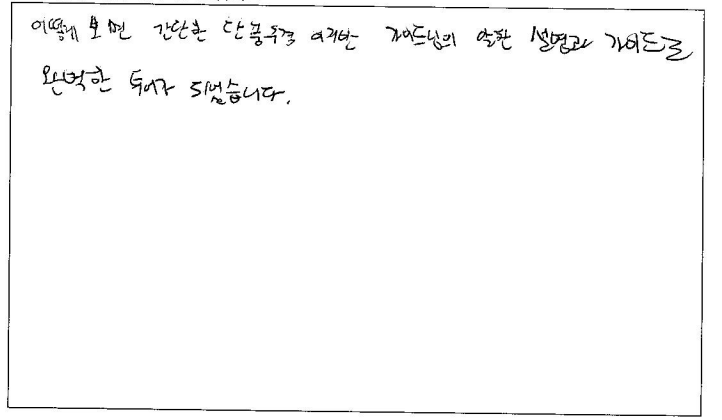 어떻게 보면 간단한 단풍구경 이지만 가이드님의 알찬 설명과 가이드로
완벽한 투어가 되었습니다.